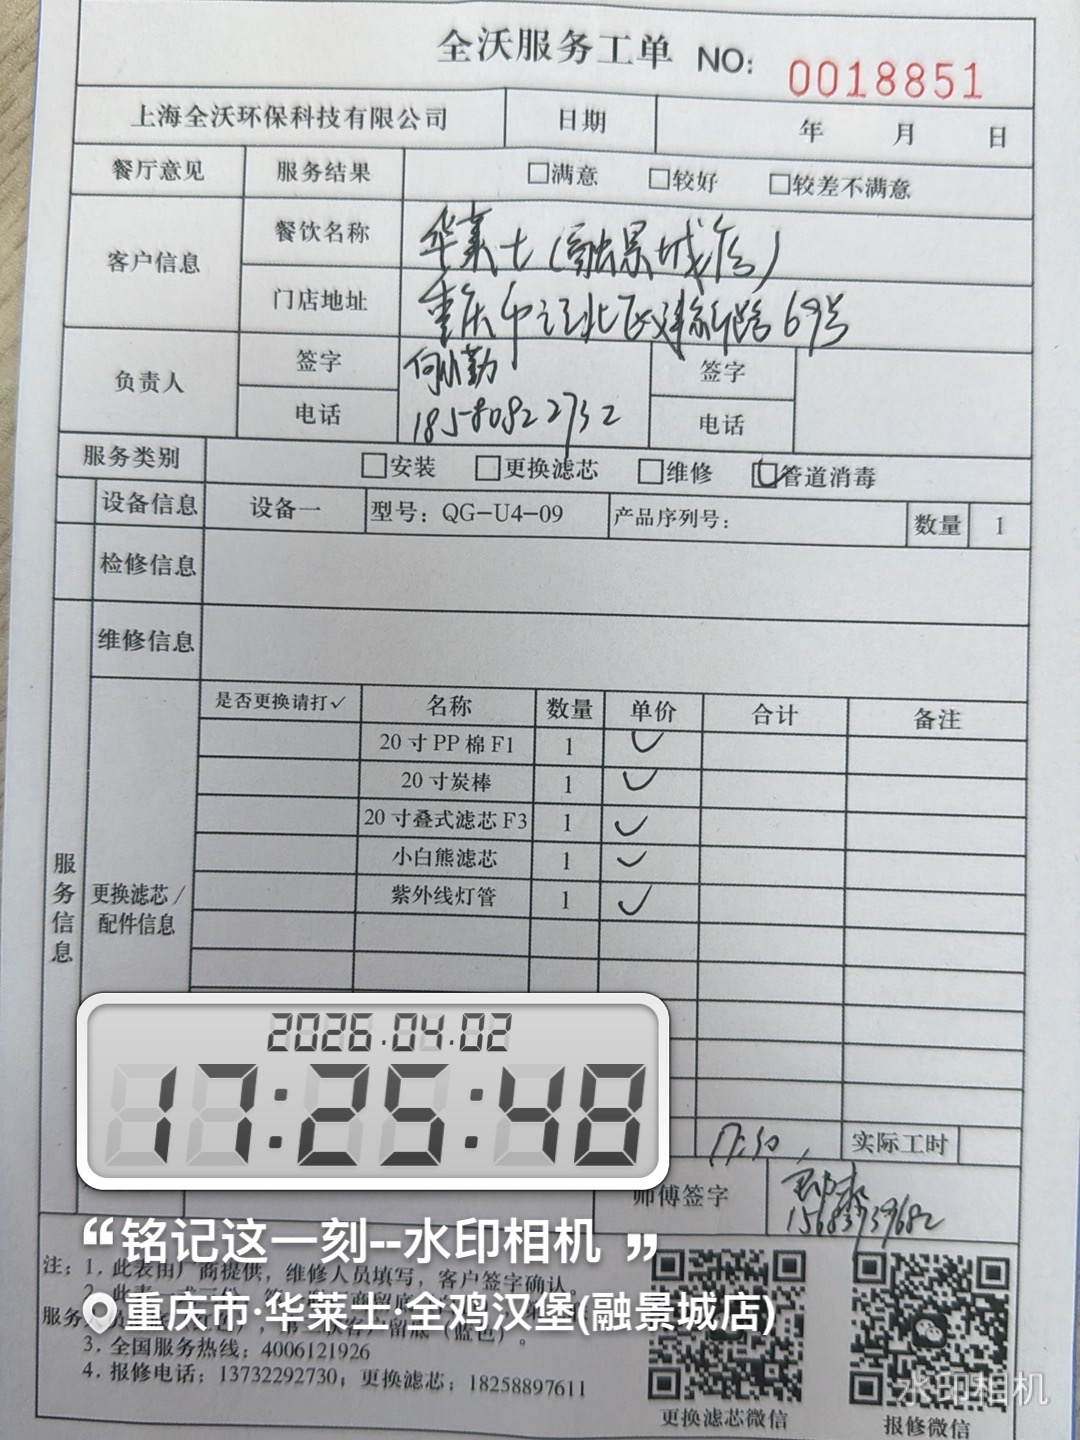 全沃服务工单 NO: 0018851
上海全沃环保科技有限公司 日期 年 月 日
餐厅意见 服务结果 □满意 □较好 □较差不满意
客户信息 餐饮名称 华莱士(融景城店)
门店地址 重庆市江北区建新路69号
负责人 签字 何小勤 签字
电话 18580822732 电话
服务类别 □安装 □更换滤芯 □维修 ☑管道消毒
设备信息 设备一 型号: QG-U4-09 产品序列号: 数量 1
检修信息
维修信息
服务信息
更换滤芯/
配件信息
是否更换请打✓ 名称 数量 单价 合计 备注
20寸PP棉F1 1 ✓
20寸炭棒 1 ✓
20寸叠式滤芯F3 1 ✓
小白熊滤芯 1 ✓
紫外线灯管 1 ✓
2026.04.02
17:25:48
17:30 实际工时
师傅签字
15683939682
“铭记这一刻--水印相机”
注: 1. 此表由厂商提供, 维修人员填写, 客户签字确认
重庆市·华莱士·全鸡汉堡(融景城店)
3. 全国服务热线: 4006121926
4. 报修电话: 13732292730; 更换滤芯: 18258897611
更换滤芯微信 报修微信
水印相机